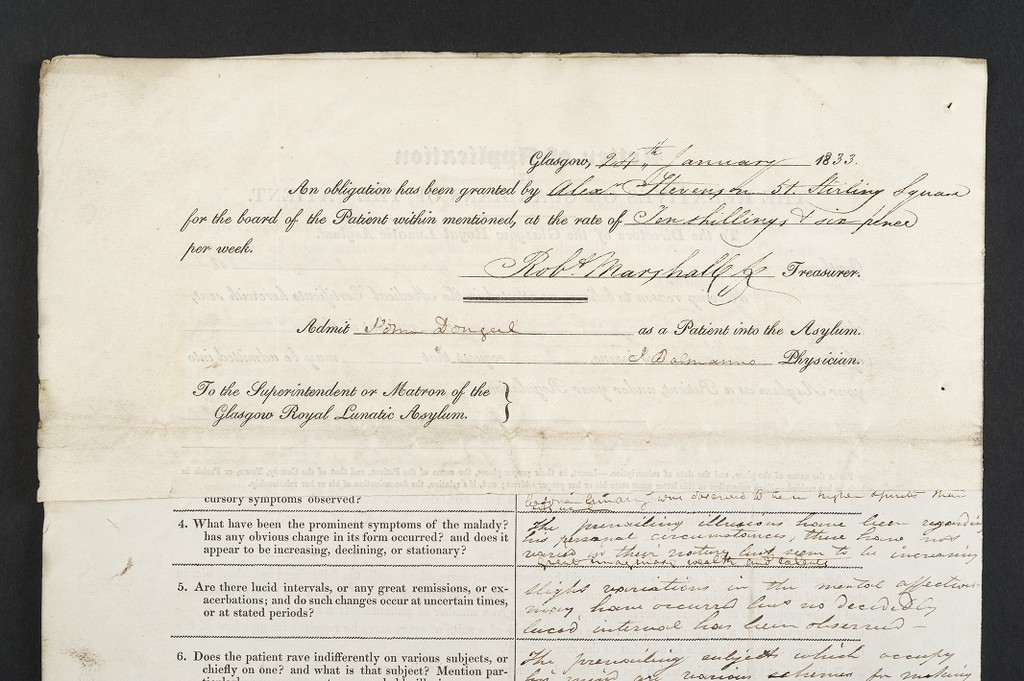 Glasgow, 24th January 1833.
An obligation has been granted by Alexr Stevenson 51 Stirling Square
for the board of the Patient within mentioned, at the rate of Ten shillings & six pence
per week.
Robt Marshall Treasurer.
Admit John Dougal as a Patient into the Asylum.
J Balmanno Physician.
To the Superintendent or Matron of the
Glasgow Royal Lunatic Asylum.
cursory symptoms observed?
was observed to be in higher spirits than
4. What have been the prominent symptoms of the malady?
has any obvious change in its form occurred? and does it
appear to be increasing, declining, or stationary?
The prevailing illusions have been regarding
his personal circumstances, these have not
varied in their nature but seem to be increasing
great imaginary wealth and talents
5. Are there lucid intervals, or any great remissions, or ex-
acerbations; and do such changes occur at uncertain times,
or at stated periods?
Slight variations in the mental affection
may have occurred but no decidedly
lucid interval has been observed —
6. Does the patient rave indifferently on various subjects, or
chiefly on one? and what is that subject? Mention par-
The prevailing subject which occupy
his mind are various schemes for making